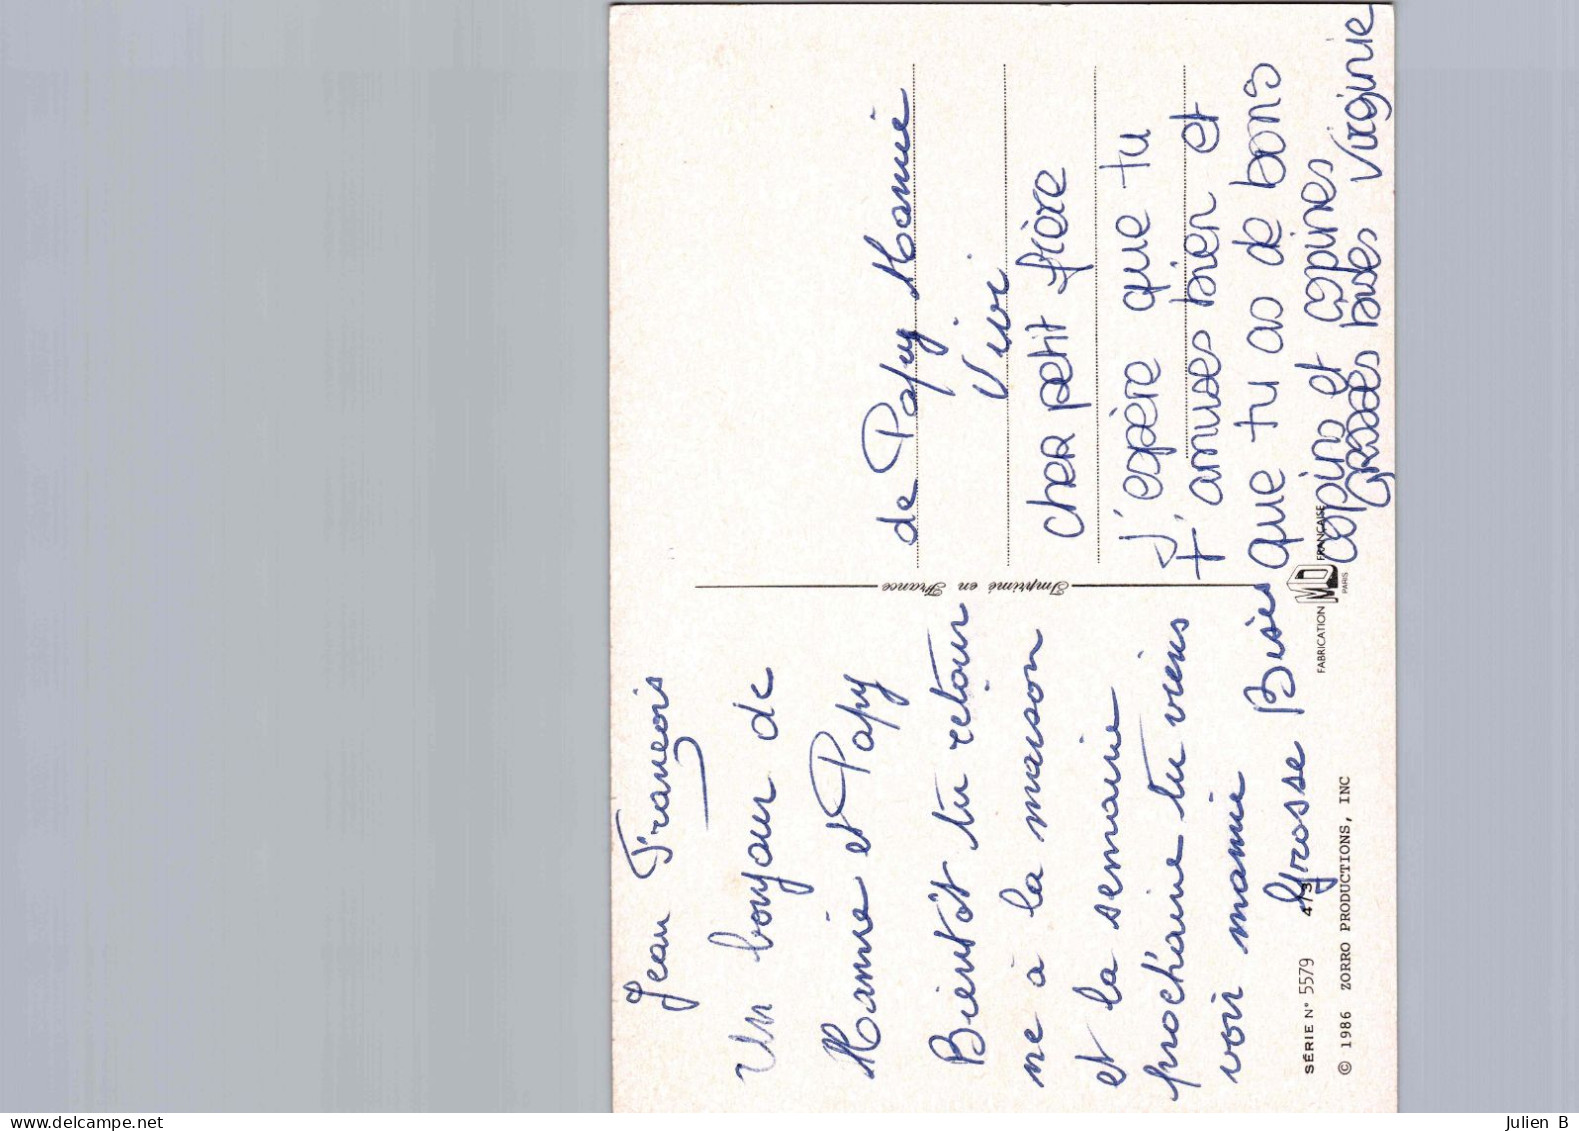 Jean François
Un bonjour de
Mamie et Papy
Bientôt tu retour
ne à la maison
et la semaine
prochaine tu viens
voir mamie
Grosse Bises
SÉRIE N° 5579 4/3
© 1986 ZORRO PRODUCTIONS, INC
Imprimé en France
FABRICATION MD FRANÇAISE
PARIS
de Papy Mamie
Vivi
cher petit frère
J'espère que tu
t'amuses bien et
que tu as de bons
copins et copines
Grosses bises Virginie
www.delcampe.net
Julien B